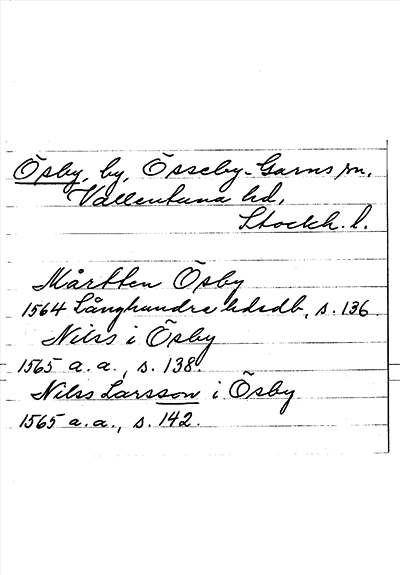 Ösby, by, Össeby-Garns sn,
Vallentuna hd,
Stockh. l.
Mårtten Ösby
1564 Långhundra hdsdb, s. 136
Nilss i Ösby
1565 a. a., s. 138
Nilss Larsson i Ösby
1565 a. a., s. 142.